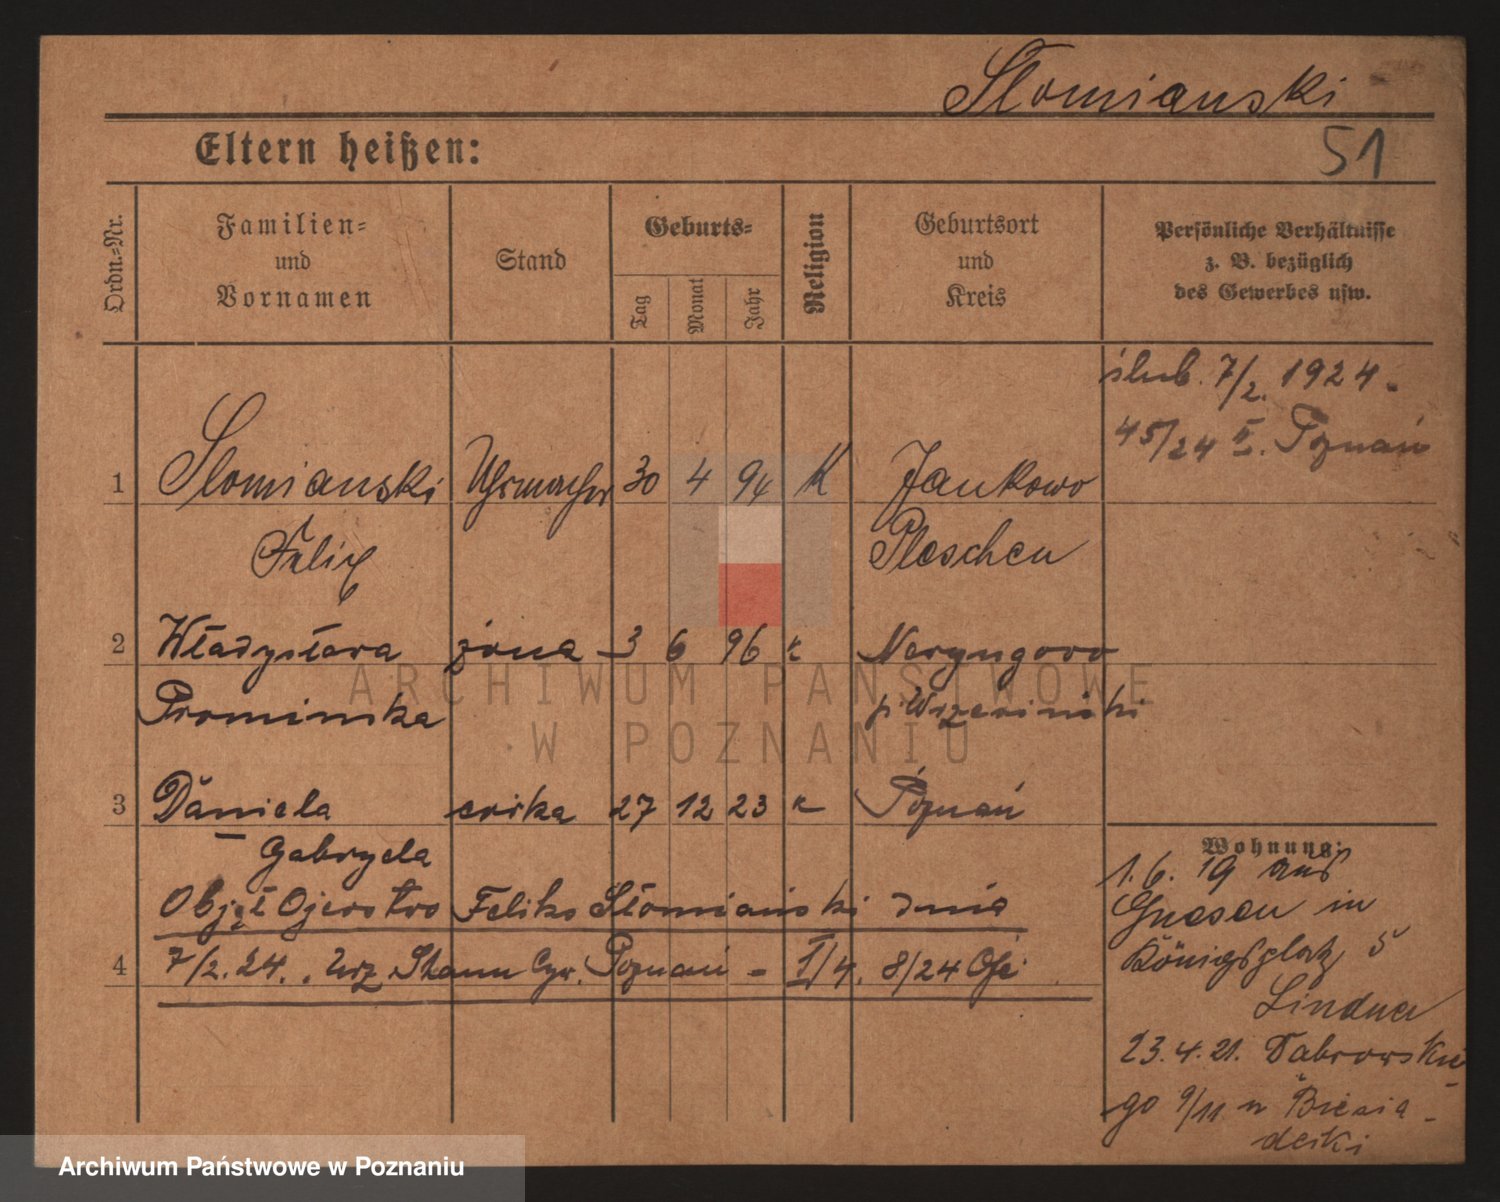 Słomianski
51
Eltern heißen:
Ordn.=Nr.
Familien=
und
Vornamen
Stand
Geburts=
Tag
Monat
Jahr
Religion
Geburtsort
und
Kreis
Persönliche Verhältnisse
z. B. bezüglich
des Gewerbes usw.
ślub. 7/2. 1924.
45/24 II. Poznań
1 Slomianski Uhrmacher 30 4 94 K Jankowo
Felix Pleschen
2 Władysława żona 3 6 96 k
Prominska
3 Daniela córka 27 12 23 k Poznań
Gabryela
Objął Ojcostwo Feliks Słomiański dnia
4 7/2. 24. Urz. Stanu Cyw. Poznań - I/4. 8/24
Wohnung:
1. 6. 19 aus
Gnesen in
Königsplatz 5
Lindner
23. 4. 21. Dąbrowskie-
go 9/11 u Biesia-
decki
ARCHIWUM PAŃSTWOWE
W POZNANIU
Archiwum Państwowe w Poznaniu